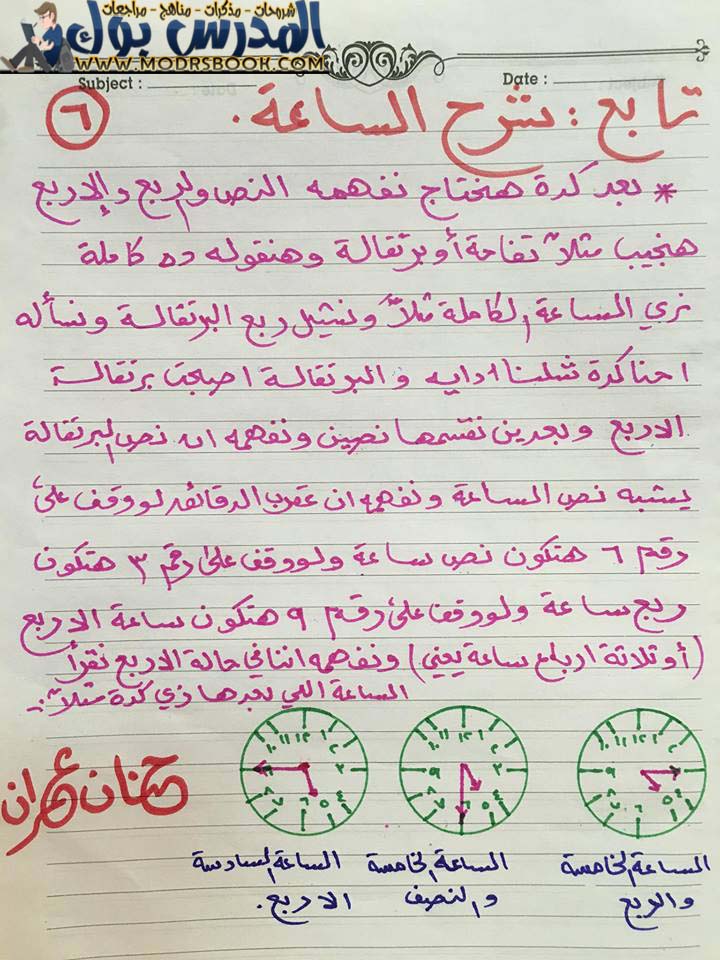 شروحات - مذكرات - مناهج - مراجعات
المدرس بوك
WWW.MODRSBOOK.COM
Subject :
Date :
تابع : شرح الساعة .
٦
* بعد كدة هنحتاج نفهمه النص والربع وإلا ربع
هنجيب مثلاً تفاحة أو برتقالة وهنقوله ده كاملة
زي الساعة الكاملة مثلاً ونشيل ربع البرتقالة ونسأله
احنا كدة شلنا اد ايه والبرتقالة اصبحت برتقالة
الا ربع وبعدين نقسمها نصين ونفهمه ان نص البرتقالة
يشبه نص الساعة ونفهمه ان عقرب الدقائق لو وقف على
رقم ٦ هتكون نص ساعة ولو وقف على رقم ٣ هتكون
ربع ساعة ولو وقف على رقم ٩ هتكون ساعة الا ربع
(أو تلاتة ارباع ساعة يعني) ونفهمه اننا في حالة الا ربع نقرأ
الساعة اللي بعدها زي كدة مثلاً :-
حنان عمران
الساعة الخامسة والربع
الساعة الخامسة والنصف
الساعة السادسة الا ربع .